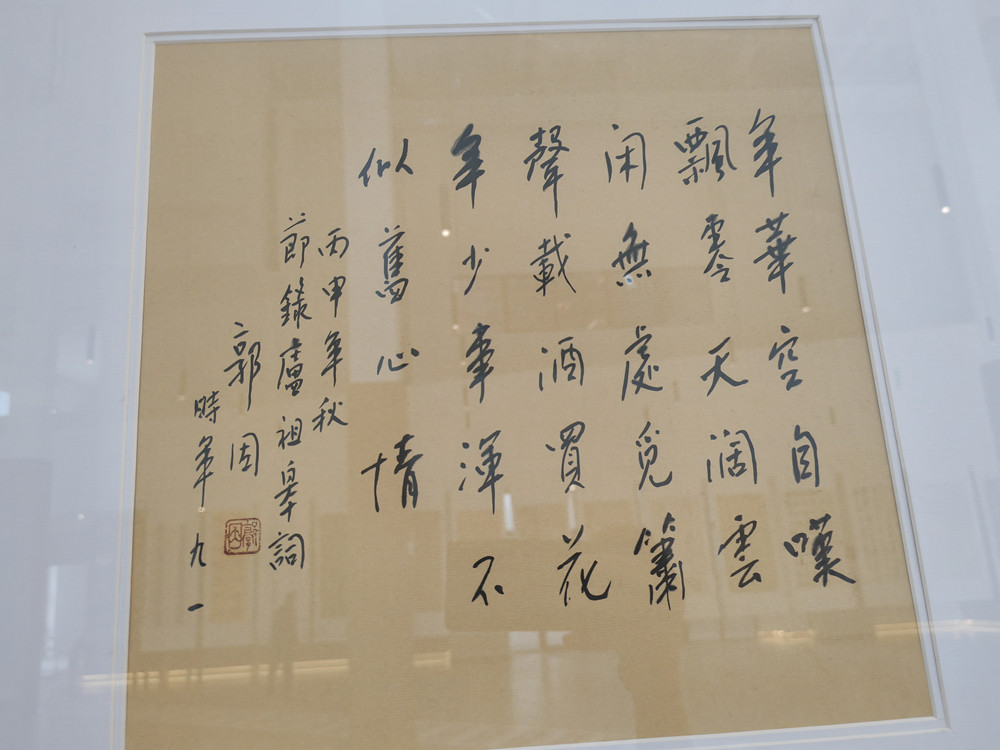 年華空自嘆
飄零天闊雲
閑無處覓簫
聲載酒買花
年少事渾不
似舊心情
丙申年秋
節錄盧祖皋詞
郭因
時年九一
郭因